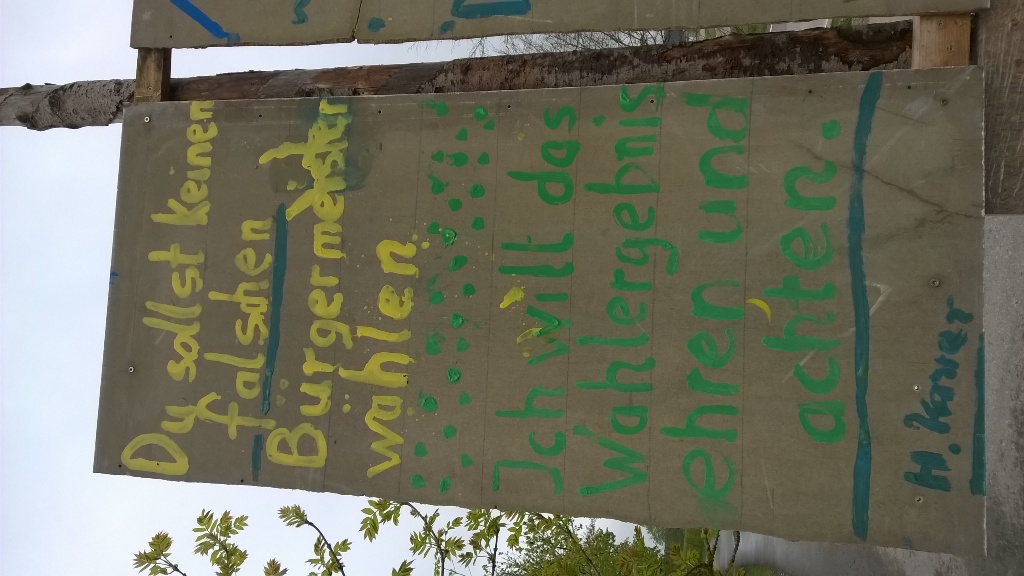 Du sollst keinen
falschen
Bürgermeister
wählen
Ich will das
Wahlergebnis
ehren und
achten.